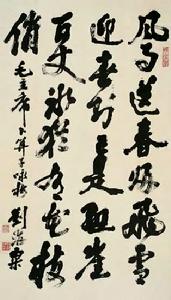 風雨送春归飛雪
迎春到已是悬崖
百丈冰犹有花枝
俏
毛主席卜算子咏梅
劉海粟